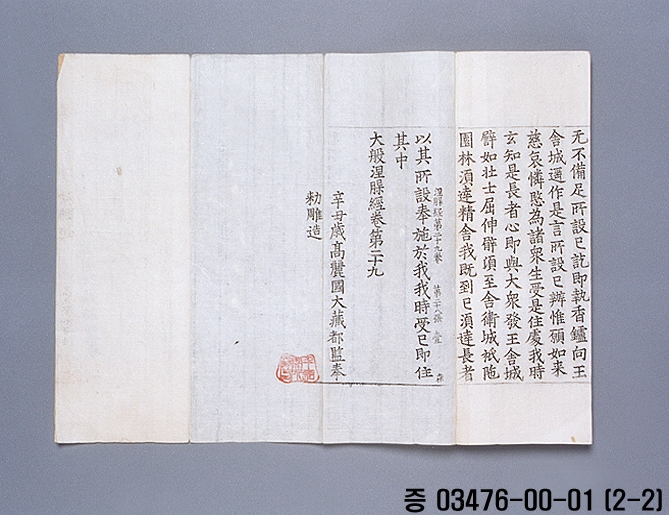 无不備足所設已訖即執香鑪向王
舍城遥作是言所設已辦惟願如来
慈哀憐愍為諸衆生受是住處我時
玄知是長者心即與大衆發王舍城
譬如壮士屈伸臂頃至舍衛城祇陁
園林湏達精舍我既到已湏達長者
涅槃經第二十九卷 第二十八張
以其所設奉施於我我時受已即住
其中
大般涅槃經卷第二十九
辛丑歳髙麗國大藏都監奉
勑雕造
증 03476-00-01 (2-2)